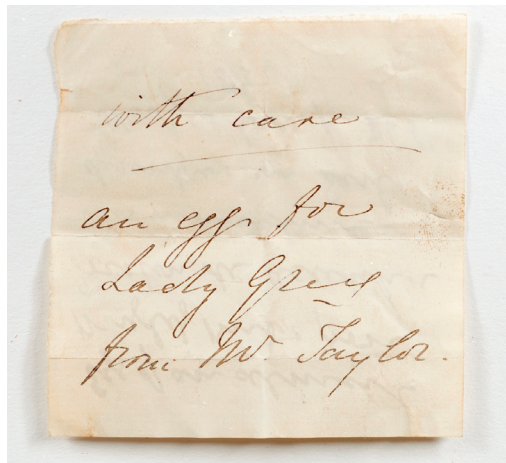 with care
an egg for
Lady Grey
from Mr. Taylor.